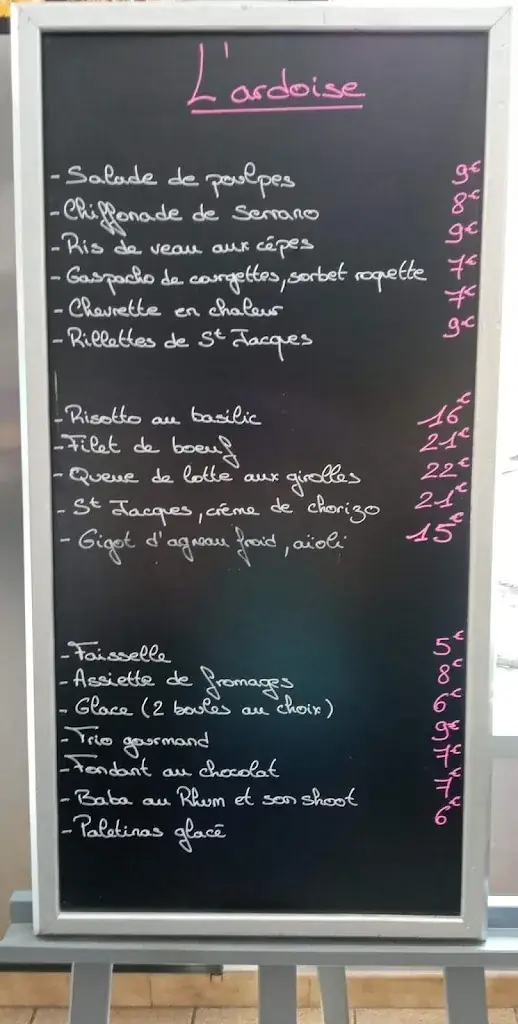 L'ardoise
- Salade de poulpes 9€
- Chiffonade de Serrano 8€
- Ris de veau aux cépes 9€
- Gaspacho de courgettes, sorbet roquette 7€
- Chevrette en chaleur 7€
- Rillettes de St Jacques 9€
- Risotto au basilic 16€
- Filet de boeuf 21€
- Queue de lotte aux girolles 22€
- St Jacques, crème de chorizo 21€
- Gigot d'agneau froid, aïoli 15€
- Faisselle 5€
- Assiette de fromages 8€
- Glace (2 boules au choix) 6€
- Trio gourmand 9€
- Fondant au chocolat 7€
- Baba au Rhum et son shoot 7€
- Paletinas glacé 6€